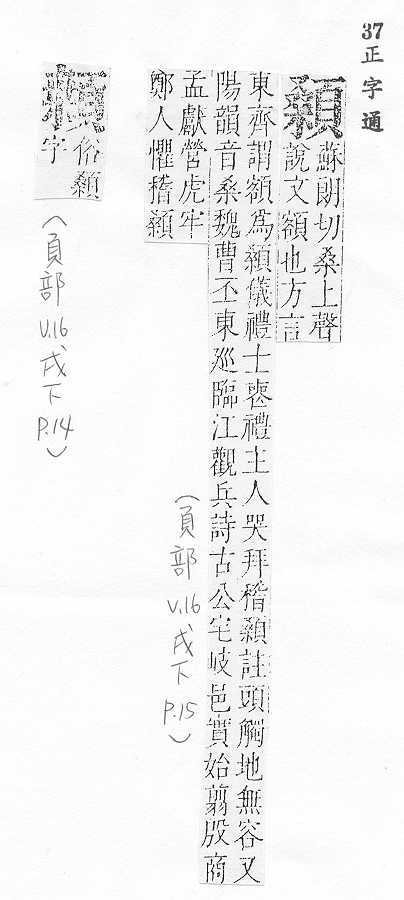 37正字通
顙
蘇朗切桑上聲
說文額也方言
東齊謂額為顙儀禮士喪禮主人哭拜稽顙註頭觸地無容又
陽韻音桑魏曹丕東廵臨江觀兵詩古公宅岐邑實始翦殷商
孟獻營虎牢
鄭人懼稽顙
(頁部 V.16 戌下 P.15)
俗顙
字
(頁部 V.16 戌下 P.14)